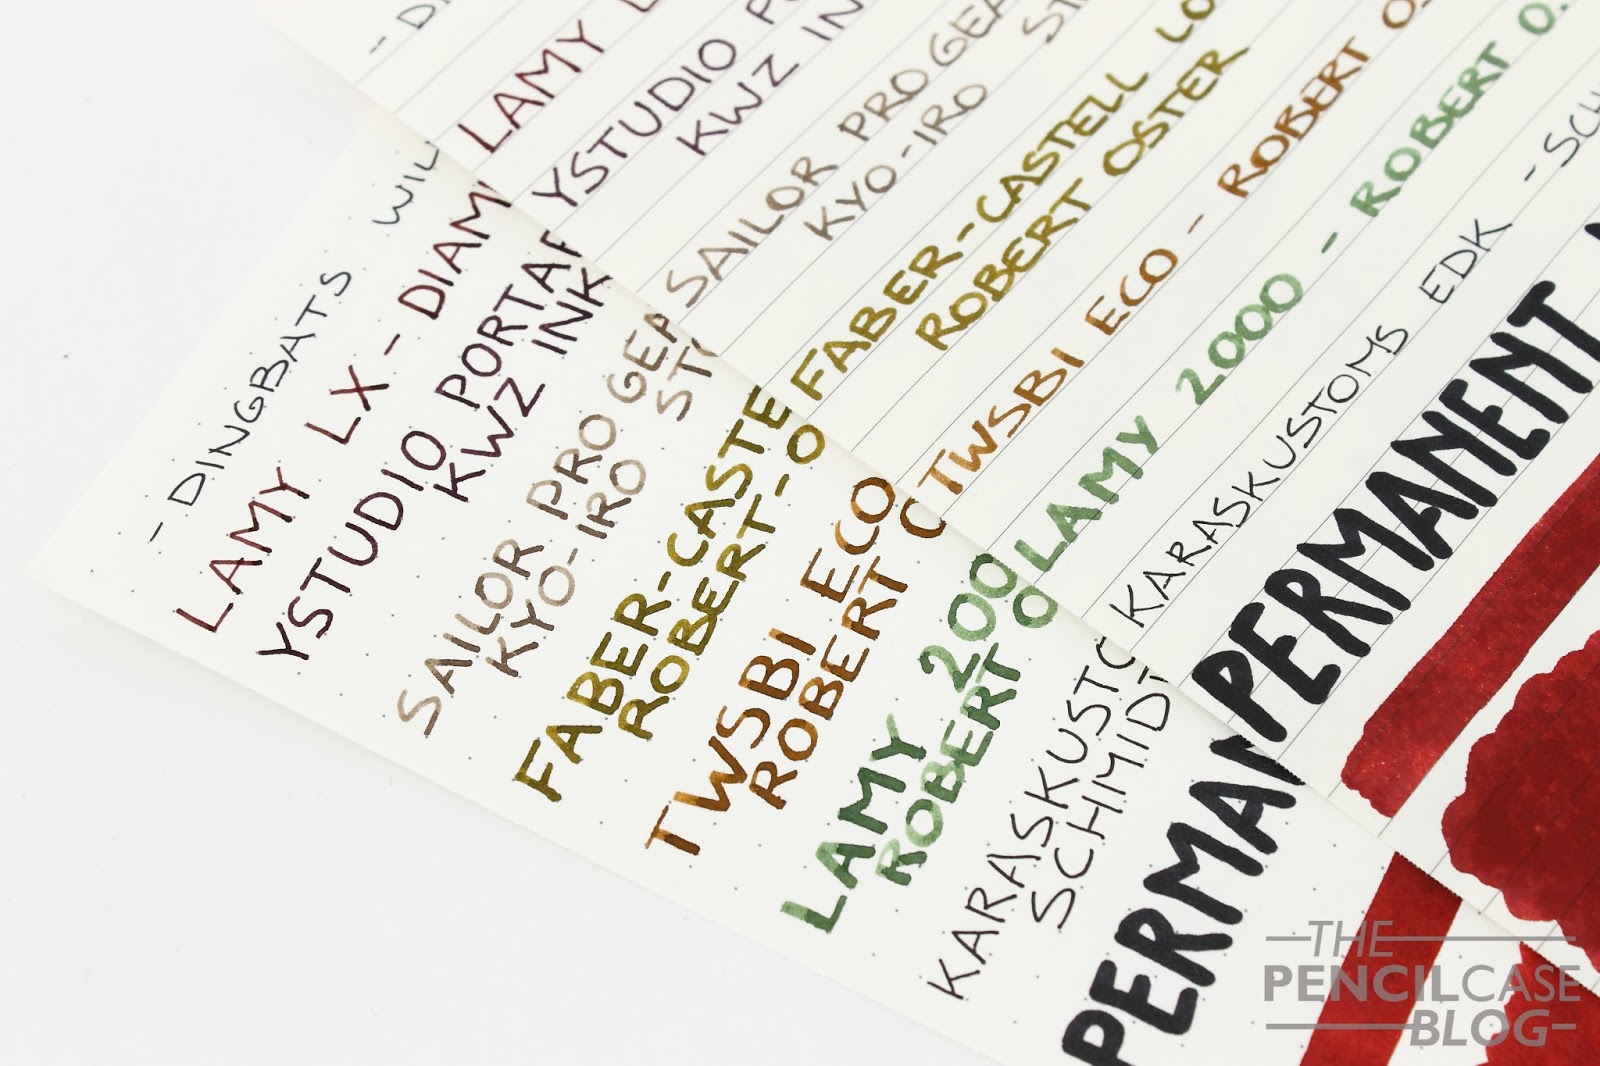 - DINGBATS WIL
LAMY LX - DIAM
YSTUDIO PORTA
KWZ INK
SAILOR PRO GEA
KYO-IRO ST
FABER-CASTE
ROBERT-O
TWSBI ECO
ROBERT O
LAMY 200
ROBERT O
KARASKUSTO
SCHMIDT
PERMAN
- D
LAMY L
YSTUDIO P
KWZ IN
SAILOR PRO GEA
KYO-IRO ST
FABER-CASTELL LO
ROBERT OSTER
TWSBI ECO - ROBERT O
LAMY 2000 - ROBERT O.
KARASKUSTOMS EDK - SCH
PERMANENT
THE
PENCILCASE
BLOG